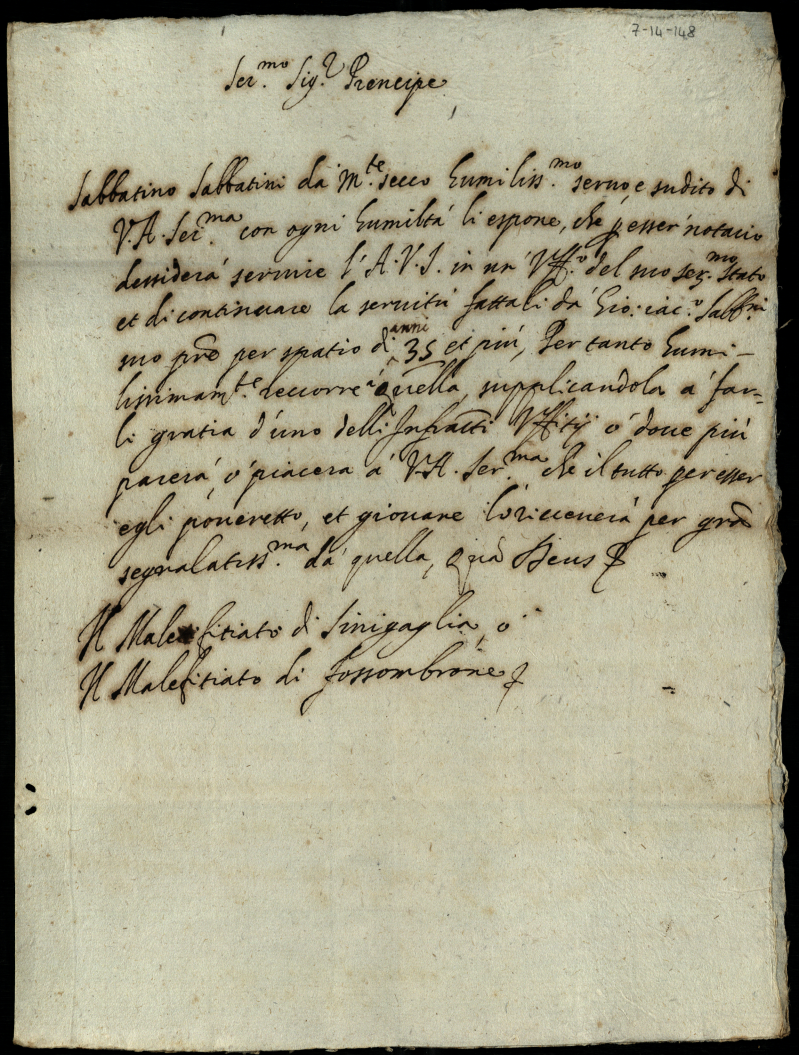 7-14-148
Ser.mo Sig.r Prencipe
Sabbatino Sabbatini da M.te secco humiliss.mo seruo e sudito di
V.A. Ser.ma con ogni humiltà li espone, che p esser notario
dessiderà seruire l'A.V.S. in un' Uff.o del suo ser.mo stato
et di continuare la seruitù fattali dà Gio: iac.o Sabb.ni
suo pre per spatio di anni 35 et più, Per tanto humi-
lissimam.te reccorre à quella, supplicandola à far-
li gratia d'uno delli Infratti Uffitij ò doue più
parerà, ò piacera à V.A. Ser.ma che il tutto per esser
egli poueretto, et giouane lo riceuerà per gra
segnalatiss.ma dà quella, quã Deus
Il Malefitiato di Sinigaglia, ò
Il Malefitiato di fossombrone